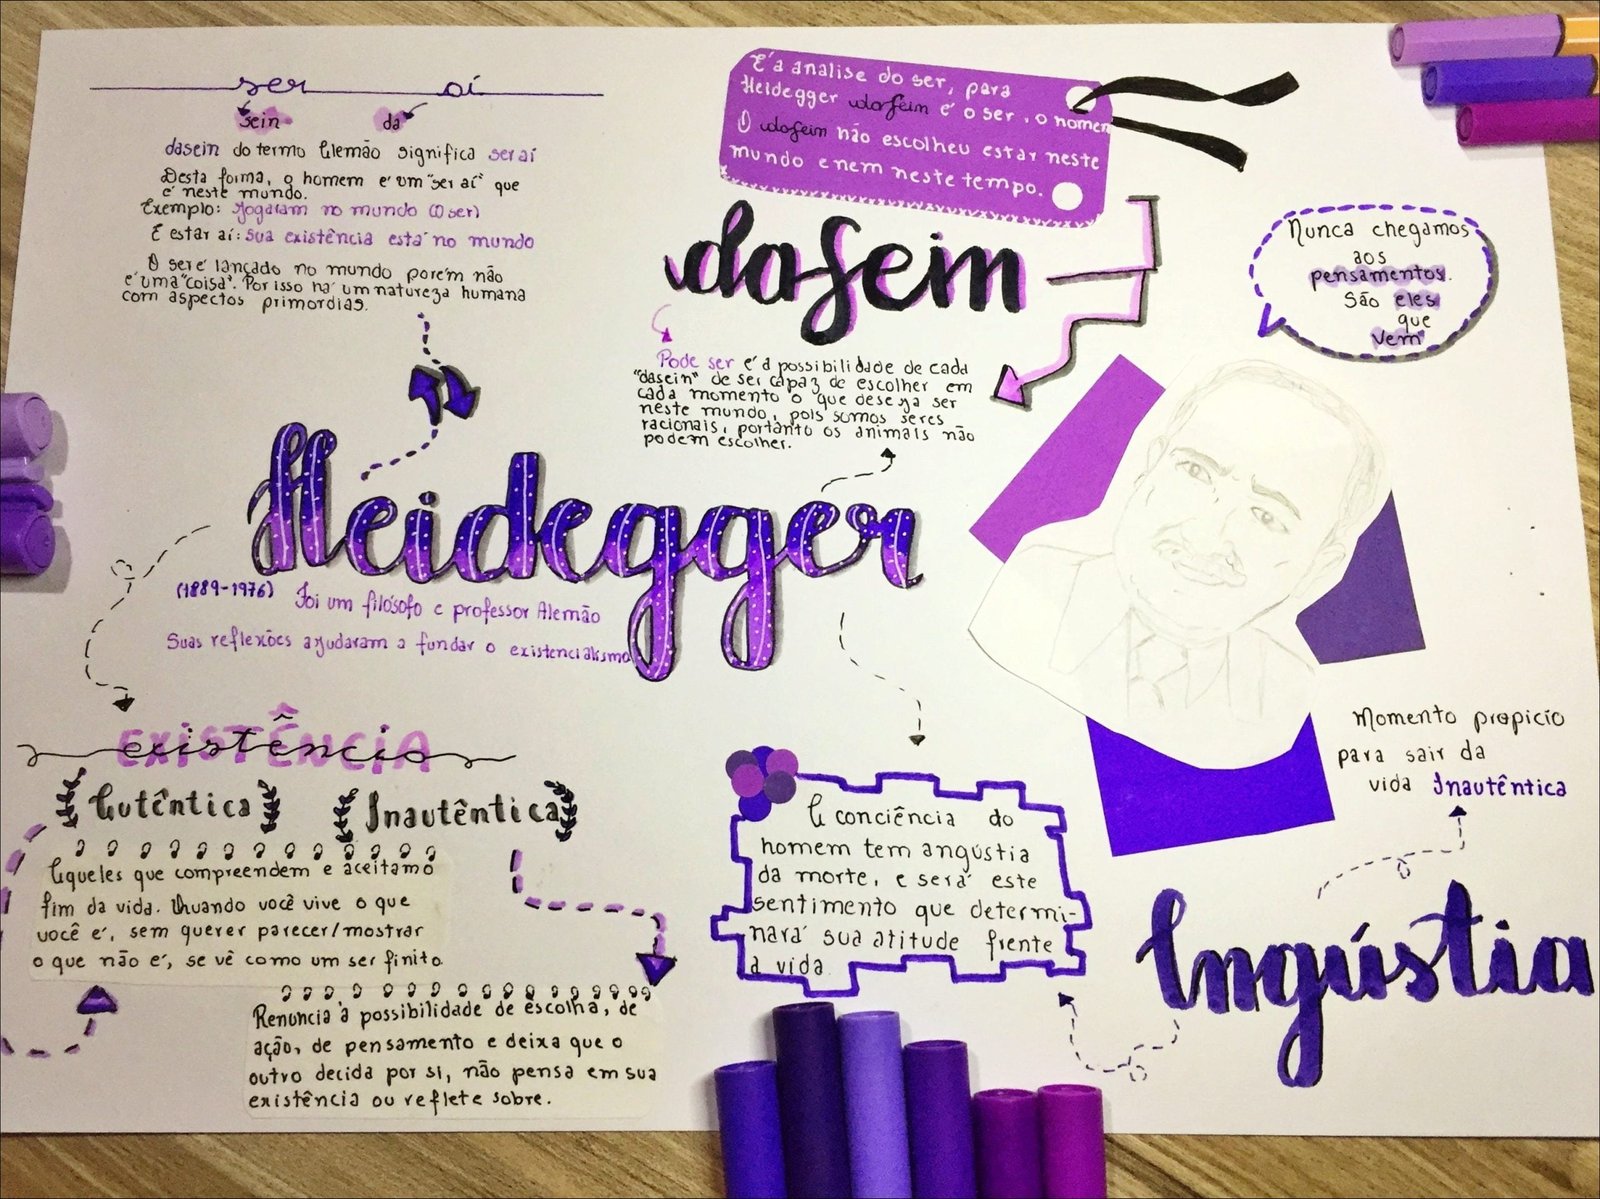 ser aí
sein da
dasein do termo Alemão significa ser aí
Desta forma, o homem é um "ser aí" que
é neste mundo.
Exemplo: Jogaram no mundo (O ser)
E estar aí: sua existência está no mundo
O ser é lançado no mundo porém não
é uma "coisa". Por isso há um natureza humana
com aspectos primordias.
É a analise do ser, para
Heidegger dasein é o ser, o homem
O dasein não escolheu estar neste
mundo e nem neste tempo.
dasein
Pode ser é a possibilidade de cada
"dasein" de ser capaz de escolher em
cada momento o que deseja ser
neste mundo, pois somos seres
racionais, portanto os animais não
podem escolher.
Nunca chegamos
aos
pensamentos.
São eles
que
vem
Heidegger
(1889-1976) Foi um filósofo e professor Alemão
Suas reflexões ajudaram a fundar o existencialismo
EXISTÊNCIA
existência
Autêntica
Inautêntica
Aqueles que compreendem e aceitam o
fim da vida. Quando você vive o que
você é, sem querer parecer/mostrar
o que não é, se vê como um ser finito
Renuncia à possibilidade de escolha, de
ação, de pensamento e deixa que o
outro decida por si, não pensa em sua
existência ou reflete sobre.
A conciência do
homem tem angústia
da morte, e será este
sentimento que determi-
nará sua atitude frente
à vida
Momento propicio
para sair da
vida Inautêntica
Angústia